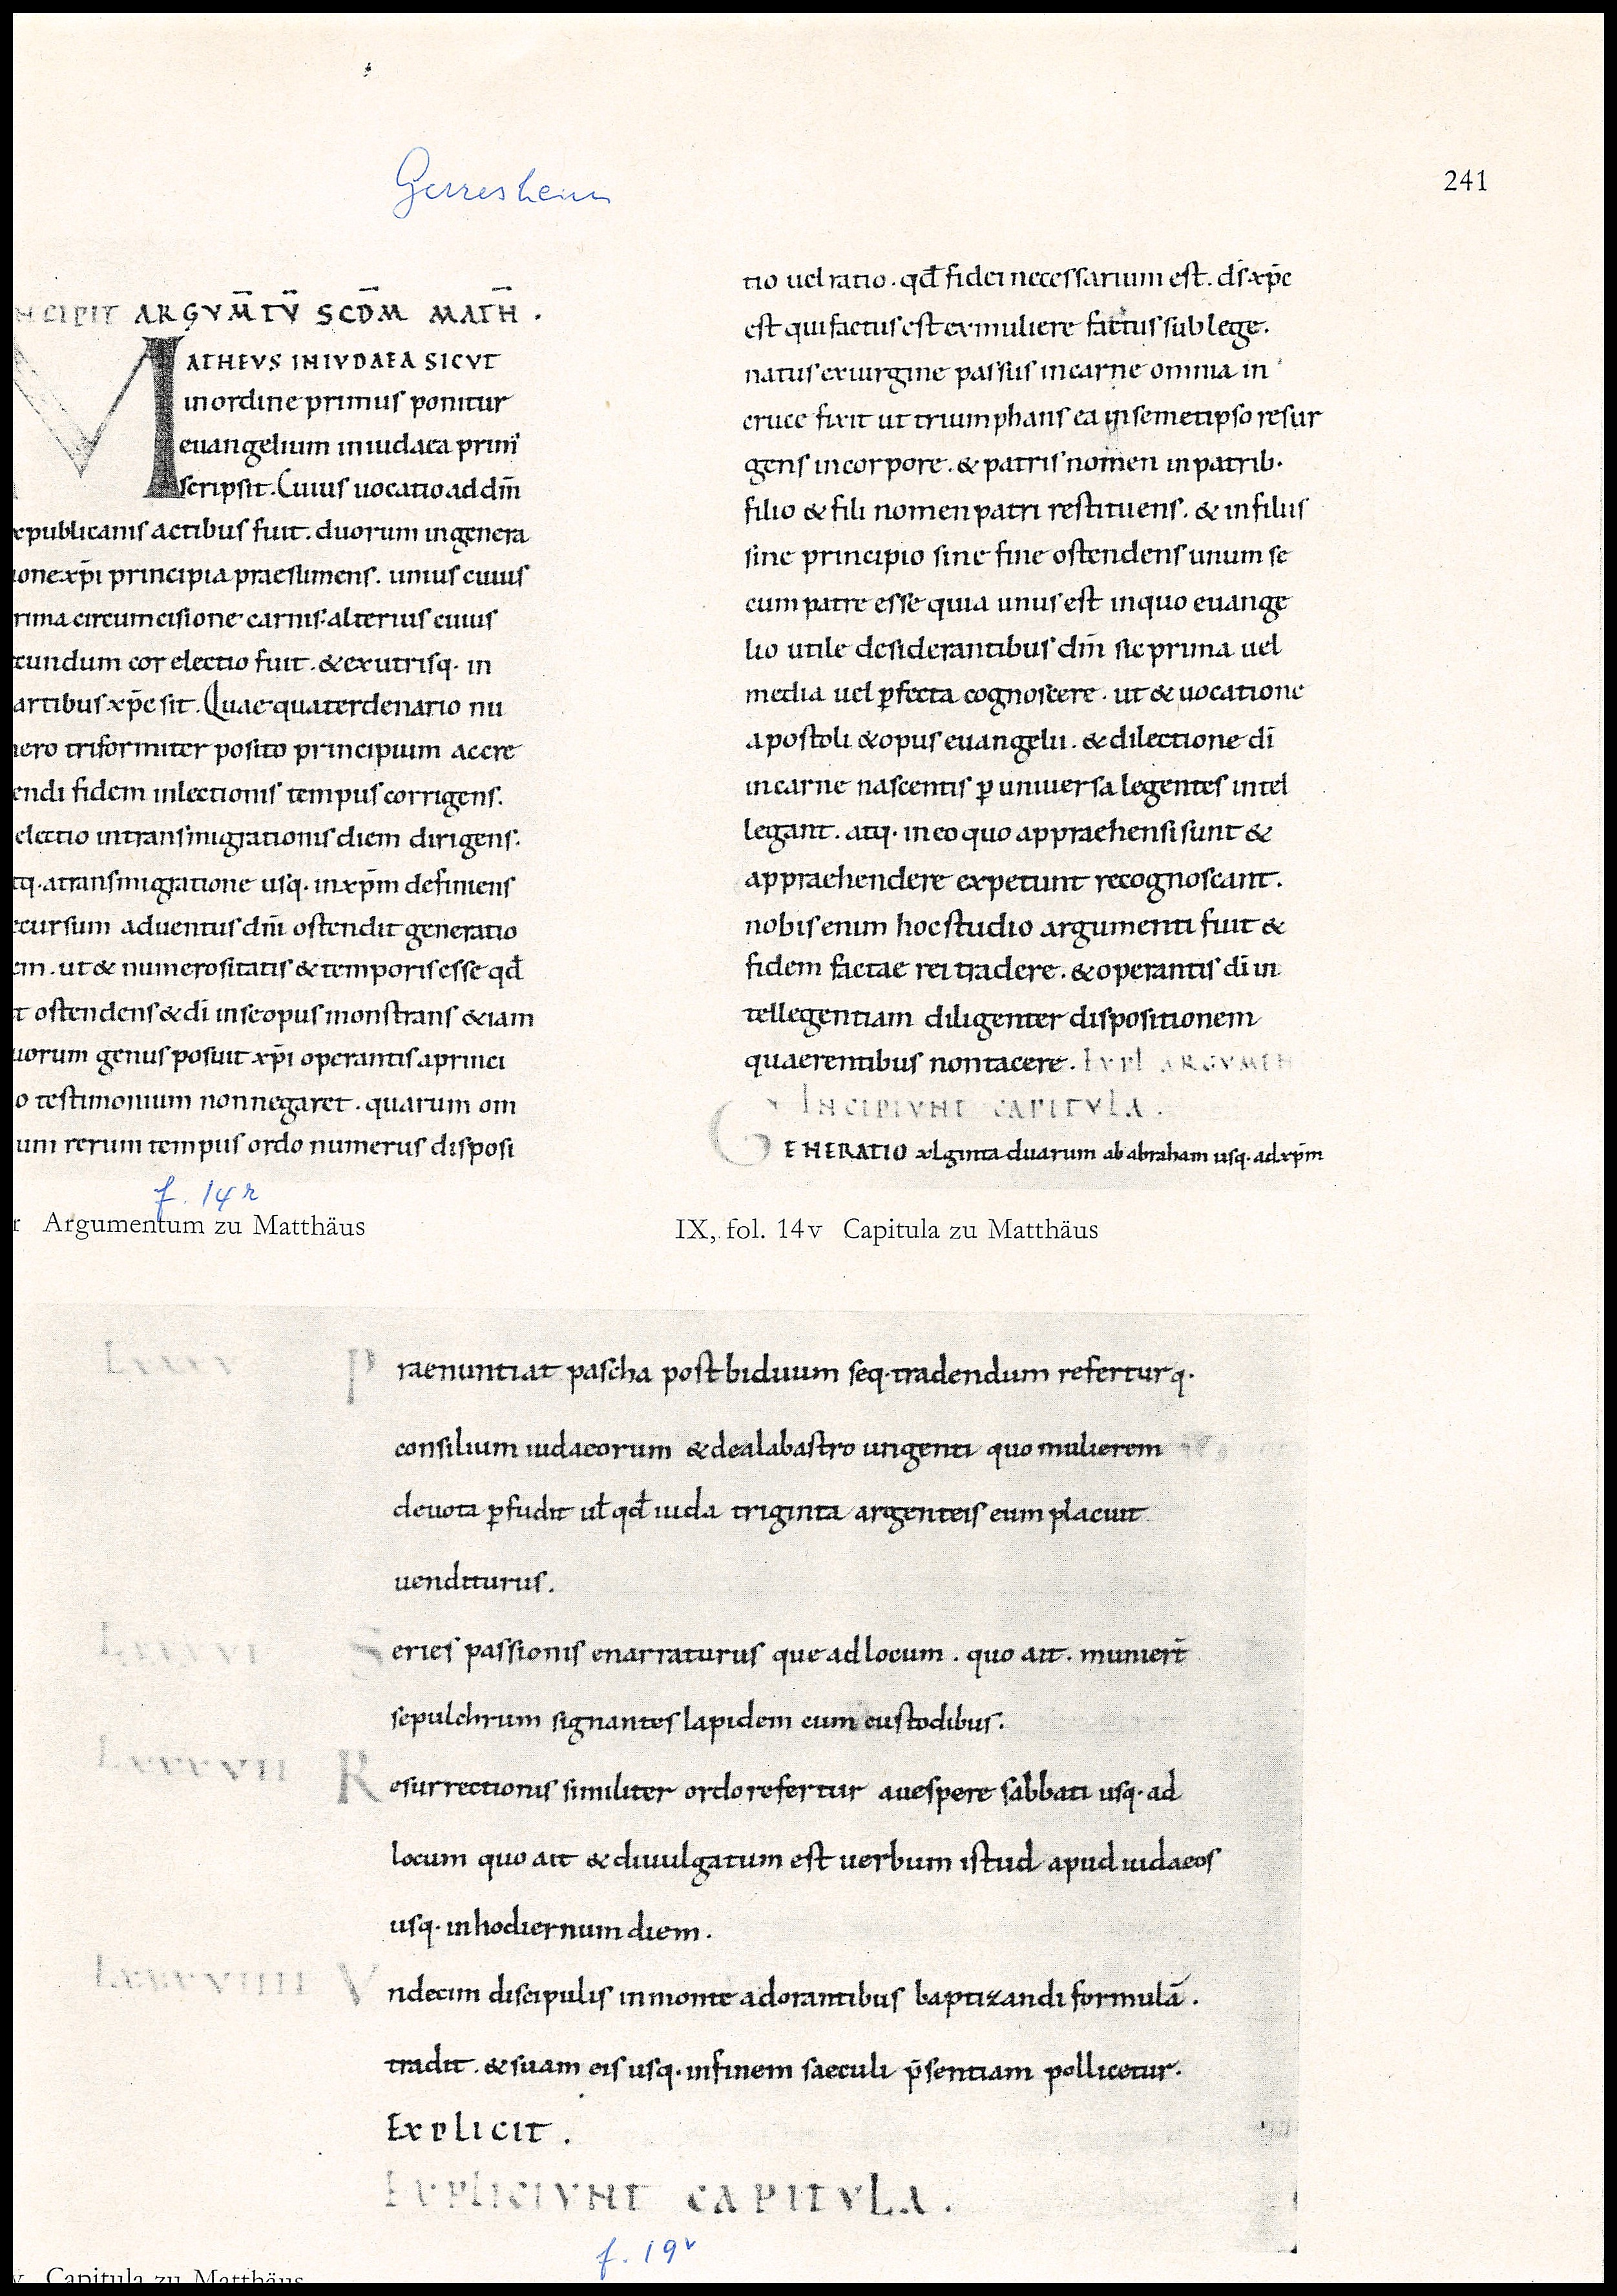 Gerresheim
241
NCIPIT ARGVM̄TV̄ SCD̄M MATH̄ .
MATHEVS IN IVDAEA SICVT
inordine primus ponitur
euangelium iniudaea prim̄
scripsit. Cuius uocatio ad dn̄m
xpublicanis actibus fuit. duorum ingenera
ione xp̄i principia praesumens. unius cuius
rima circumcisione carnis. alterius cuius
cundum cor electio fuit. & ex utrisq. in
artibus xp̄c sit. Quae quaterdenario nu
nero triformiter posito principium accre
endi fidem inlectionis tempus corrigens.
electio intransmigrationis diem dirigens.
tq. atransmigratione usq. in xp̄m definiens
ecursum aduentus dn̄i ostendit generatio
em. ut & numerositatis & temporis esse qđ
t ostendens & dī inse opus monstrans & iam
uorum genus posuit xp̄i operantis aprinci
o testimonium nonnegaret. quarum om
um rerum tempus ordo numerus disposi
f. 14r
r Argumentum zu Matthäus
tio uel ratio. qđ fidei necessarium est. ds̄ xp̄c
est qui factus est ex muliere factus sub lege.
natus ex uirgine passus incarne omnia in
cruce fixit ut triumphans ea insemetipso resur
gens incorpore. & patris nomen inpatrib.
filio & fili nomen patri restituens. & infiliis
sine principio sine fine ostendens unum se
cum patre esse quia unus est inquo euange
lio utile desiderantibus dm̄ sic prima uel
media uel ꝑfecta cognoscere. ut & uocatione
apostoli & opus euangelii. & dilectione dī
incarne nascentis ꝑ uniuersa legentes intel
legant. atq. ineo quo appraehensi sunt &
appraehendere expetunt recognoscant.
nobis enim hoc studio argumenti fuit &
fidem factae rei tradere. & operantis dī in
tellegentiam diligenter dispositionem
quaerentibus nontacere. EXPL ARGVMEN
INCIPIVNT CAPITVLA.
GENERATIO xlginta duarum ab abraham usq. ad xp̄m
IX, fol. 14v Capitula zu Matthäus
Praenuntiat pascha post biduum seq. tradendum refertur q.
consilium iudaeorum & de alabastro ungenti quo mulierem
deuota ꝑfudit ul̄ qđ iuda triginta argenteis eum placuit
uenditurus.
Series passionis enarraturus que ad locum. quo ait. munier̄t
sepulchrum signantes lapidem cum custodibus.
LXXXVII Resurrectionis similiter ordo refertur auespere sabbati usq. ad
locum quo ait & diuulgatum est uerbum istud apud iudaeos
usq. inhodiernum diem.
LXXXVIIII Vndecim discipulis inmonte adorantibus baptizandi formulā.
tradit. & suam eis usq. infinem saeculi p̄sentiam pollicetur.
Explicit.
EXPLICIVNT CAPITVLA.
f. 19v
v Capitula zu Matthäus